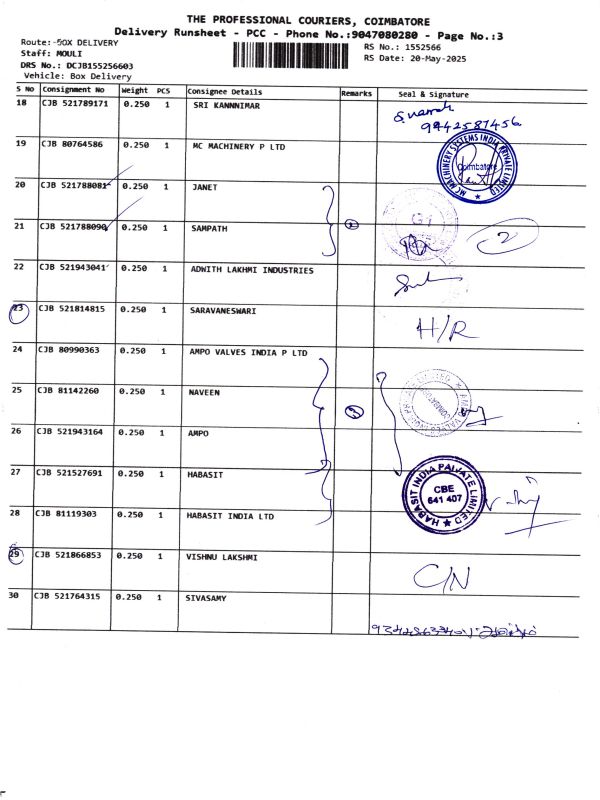 THE PROFESSIONAL COURIERS, COIMBATORE
Delivery Runsheet - PCC - Phone No.:9047080280 - Page No.:3
Route: BOX DELIVERY
Staff: MOULI
DRS No.: DCJB155256603
Vehicle: Box Delivery
RS No.: 1552566
RS Date: 20-May-2025
S No Consignment No Weight PCS Consignee Details Remarks Seal & Signature
18 CJB 521789171 0.250 1 SRI KANNNIMAR
9442587456
19 CJB 80764586 0.250 1 MC MACHINERY P LTD
MC MACHINERY SYSTEMS INDIA PRIVATE LIMITED
Coimbatore
20 CJB 521788081 0.250 1 JANET
21 CJB 521788090 0.250 1 SAMPATH
2
22 CJB 521943041 0.250 1 ADWITH LAKHMI INDUSTRIES
23 CJB 521814815 0.250 1 SARAVANESWARI H/R
24 CJB 80990363 0.250 1 AMPO VALVES INDIA P LTD
25 CJB 81142260 0.250 1 NAVEEN
26 CJB 521943164 0.250 1 AMPO
27 CJB 521527691 0.250 1 HABASIT
HABASIT INDIA PRIVATE LIMITED
CBE
641 407
28 CJB 81119303 0.250 1 HABASIT INDIA LTD
29 CJB 521866853 0.250 1 VISHNU LAKSHMI C/N
30 CJB 521764315 0.250 1 SIVASAMY